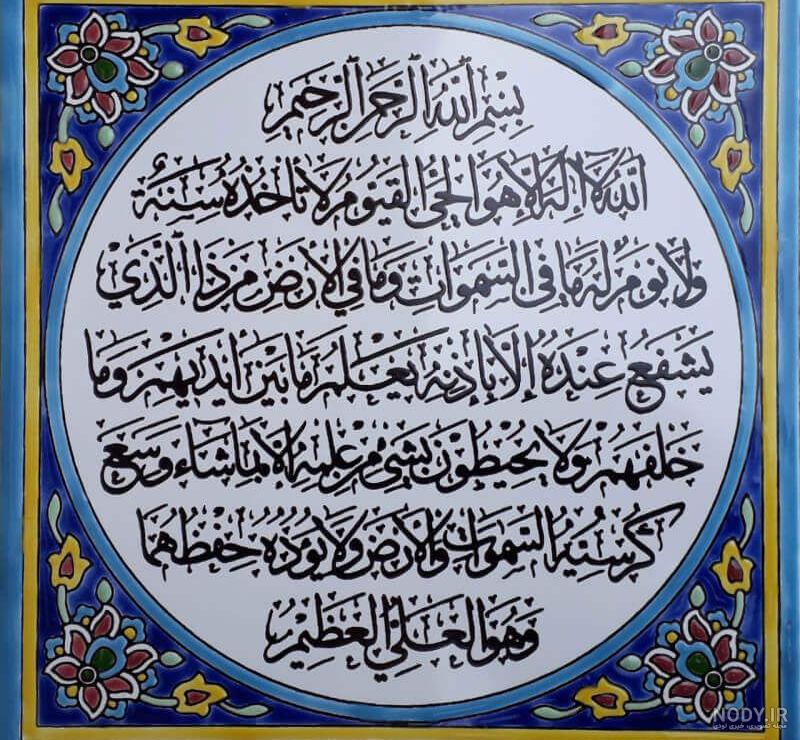 بِسْمِ اللّٰهِ الرَّحْمٰنِ الرَّحِيْمِ
اَللّٰهُ لَا اِلٰهَ اِلَّا هُوَ الْحَىُّ الْقَيُّوْمُ لَا تَأْخُذُهُ سِنَةٌ
وَلَا نَوْمٌ لَهُ مَا فِى السَّمٰوَاتِ وَمَا فِي الْاَرْضِ مَنْ ذَا الَّذِيْ
يَشْفَعُ عِنْدَهُ اِلَّا بِاِذْنِهِ يَعْلَمُ مَا بَيْنَ اَيْدِيْهِمْ وَمَا
خَلْفَهُمْ وَلَا يُحِيْطُوْنَ بِشَىْءٍ مِنْ عِلْمِهِ اِلَّا بِمَا شَاءَ وَسِعَ
كُرْسِيُّهُ السَّمٰوَاتِ وَالْاَرْضَ وَلَا يَؤُدُهُ حِفْظُهُمَا
وَهُوَ الْعَلِيُّ الْعَظِيْمُ
NODY.IR
مجله تصویری، خبری نودی